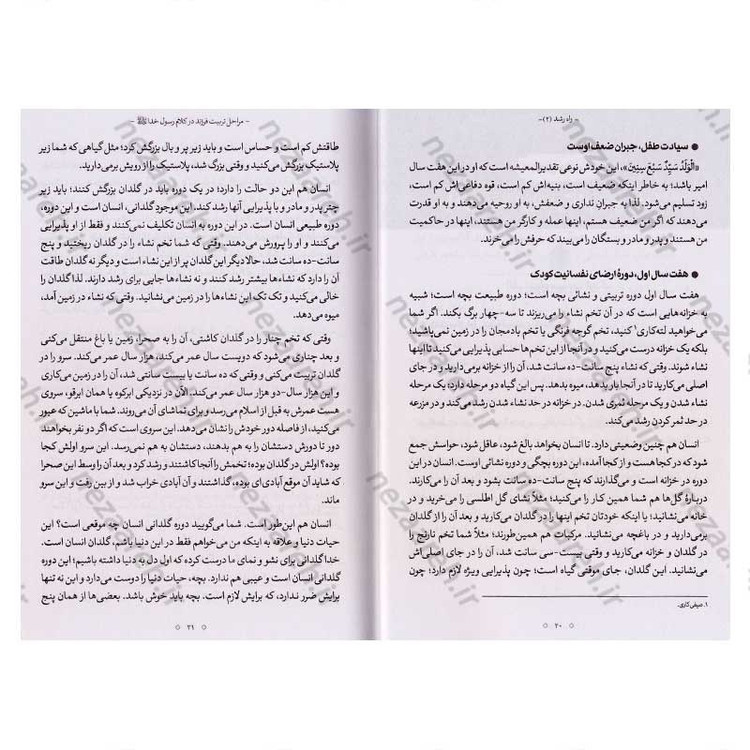 - راه رشد (۲) -
● سیادت طفل، جبران ضعف اوست
«اَلْوَلَدُ سَیِّدٌ سَبْعَ سِنِینَ»، این خودش نوعی تقدیرالمعیشه است که او در این هفت سال
امیر باشد؛ به خاطر اینکه ضعیف است، بنیه‌اش کم است، قوه دفاعی‌اش کم است،
زود تسلیم می‌شود. لذا به جبرانِ نداری و ضعفش، به او روحیه می‌دهند و به او قدرت
می‌دهند که اگر من ضعیف هستم، اینها عمله و کارگر من هستند، اینها در حاکمیت
من هستند و پدر و مادر و بستگان را می‌بیند که حرفش را می‌خرند.
● هفت سال اول، دورهٔ ارضای نفسانیت کودک
هفت سال اول دوره تربیتی و نشائی بچه است؛ دوره طبیعت بچه است؛ شبیه
به خزانه‌هایی است که در آن تخم نشاء را می‌ریزند تا سه-چهار برگ بکند. اگر شما
می‌خواهید لته‌کاری۱ کنید، تخم گوجه فرنگی یا تخم بادمجان را در زمین نمی‌پاشید؛
بلکه یک خزانه درست می‌کنید و در آنجا از این تخم‌ها حسابی پذیرایی می‌کنید تا اینها
نشاء شوند. وقتی که نشاء پنج سانت شد، آن را از خزانه برمی‌دارید و در جای
اصلی می‌کارید تا در آنجا بار بدهد، میوه بدهد. پس این گیاه دو مرحله دارد؛ یک مرحله
نشاء و یک مرحله ثمری شدن. در خزانه در حد نشاء شدن رشد می‌کند و در مزرعه
در حد ثمر کردن رشد می‌کند.
انسان هم چنین وضعیتی دارد. تا انسان بخواهد بالغ شود، عاقل شود، حواسش جمع
شود که در کجا هست و از کجا آمده، این دوره بچگی و دوره نشائی اوست. انسان در این
دوره در خزانه است و می‌گذارند که پنج سانت-ده سانت بشود و بعد آن را می‌کارند.
دربارهٔ گل‌ها هم شما همین کار را می‌کنید؛ مثلاً نشای گل اطلسی را می‌خرید و در
خانه می‌نشانید؛ یا اینکه خودتان تخم اینها را در گلدان می‌کارید و بعد آن را از گلدان
برمی‌دارید و در باغچه می‌نشانید. مرکبات هم همین‌طورند؛ مثلاً شما تخم نارنج را
در گلدان و خزانه می‌کارید و وقتی بیست-سی سانت شد، آن را در جای اصلی‌اش
می‌نشانید. این گلدان، جای موقتی گیاه است؛ چون پذیرایی ویژه لازم دارد؛ چون
۱. صیفی‌کاری.
۲۰
- مراحل تربیت فرزند در کلام رسول خدا ﷺ -
طاقتش کم است و حساس است و باید زیر پر و بال بزرگش کرد؛ مثل گیاهی که شما زیر
پلاستیک بزرگش می‌کنید و وقتی بزرگ شد، پلاستیک را از رویش برمی‌دارید.
انسان هم این دو حالت را دارد؛ در یک دوره باید در گلدان بزرگش کنند؛ باید زیر
چتر پدر و مادر و با پذیرایی آنها رشد کند. این موجودِ گلدانی، انسان است و این دوره،
دوره طبیعی انسان است. در این دوره به انسان تکلیف نمی‌کنند و فقط از او پذیرایی
می‌کنند و او را پرورش می‌دهند. وقتی که شما تخم نشاء را در گلدان ریختید و پنج
سانت-ده سانت شد، حالا دیگر این گلدان پر از این نشاء است و دیگر نه گلدان طاقت
آن را دارد که نشاءها بیشتر رشد کنند و نه نشاءها جایی برای رشد دارند. لذا گلدان را
خالی می‌کنید و تک تک این نشاءها را در زمین می‌نشانید. وقتی که در زمین آمد،
میوه می‌دهد.
وقتی که تخم چنار را در گلدان کاشتی، آن را به صحرا، زمین یا باغ منتقل می‌کنی
و بعد چناری می‌شود که دویست سال عمر می‌کند، هزار سال عمر می‌کند. سرو را در
گلدان تربیت می‌کنی و وقتی که ده سانت یا بیست سانتی شد، آن را در زمین می‌کاری
و این هزار سال-دو هزار سال عمر می‌کند. الآن در نزدیکی ابرکوه یا همان ابرقو، سروی
هست عمرش به قبل از اسلام می‌رسد و برای تماشای آن می‌روند. شما با ماشین که عبور
می‌کنید، از فاصله دور خودش را نشان می‌دهد. این سروی است که اگر دو نفر بخواهند
دور تا دورش دستشان را به هم بدهند، دستشان به هم نمی‌رسد. این سرو اولش کجا
بوده؟ اولش در گلدان بوده؛ تخمش را آنجا کاشتند و رشد کرد و بعد آن را وسط این صحرا
که شاید آن موقع آبادی‌ای بوده، گذاشتند و آن آبادی خراب شد و از بین رفت و این سرو
ماند.
انسان هم این‌طور است. شما می‌گویید دوره گلدانی انسان چه موقعی است؟ این
حیات دنیا و علاقه به اینکه من می‌خواهم فقط در این دنیا باشم. این گلدان است.
خدا گلدانی برای نشو و نمای ما درست کرده که اول دل به دنیا داشته باشیم؛ این دوره
گلدانی انسان است و عیبی هم ندارد. بچه، حیات دنیا را دوست می‌دارد و این نه تنها
برایش ضرر ندارد، که برایش لازم است. بچه باید خوش باشد. بعضی‌ها از همان پنج
۲۱
nezaanah.ir